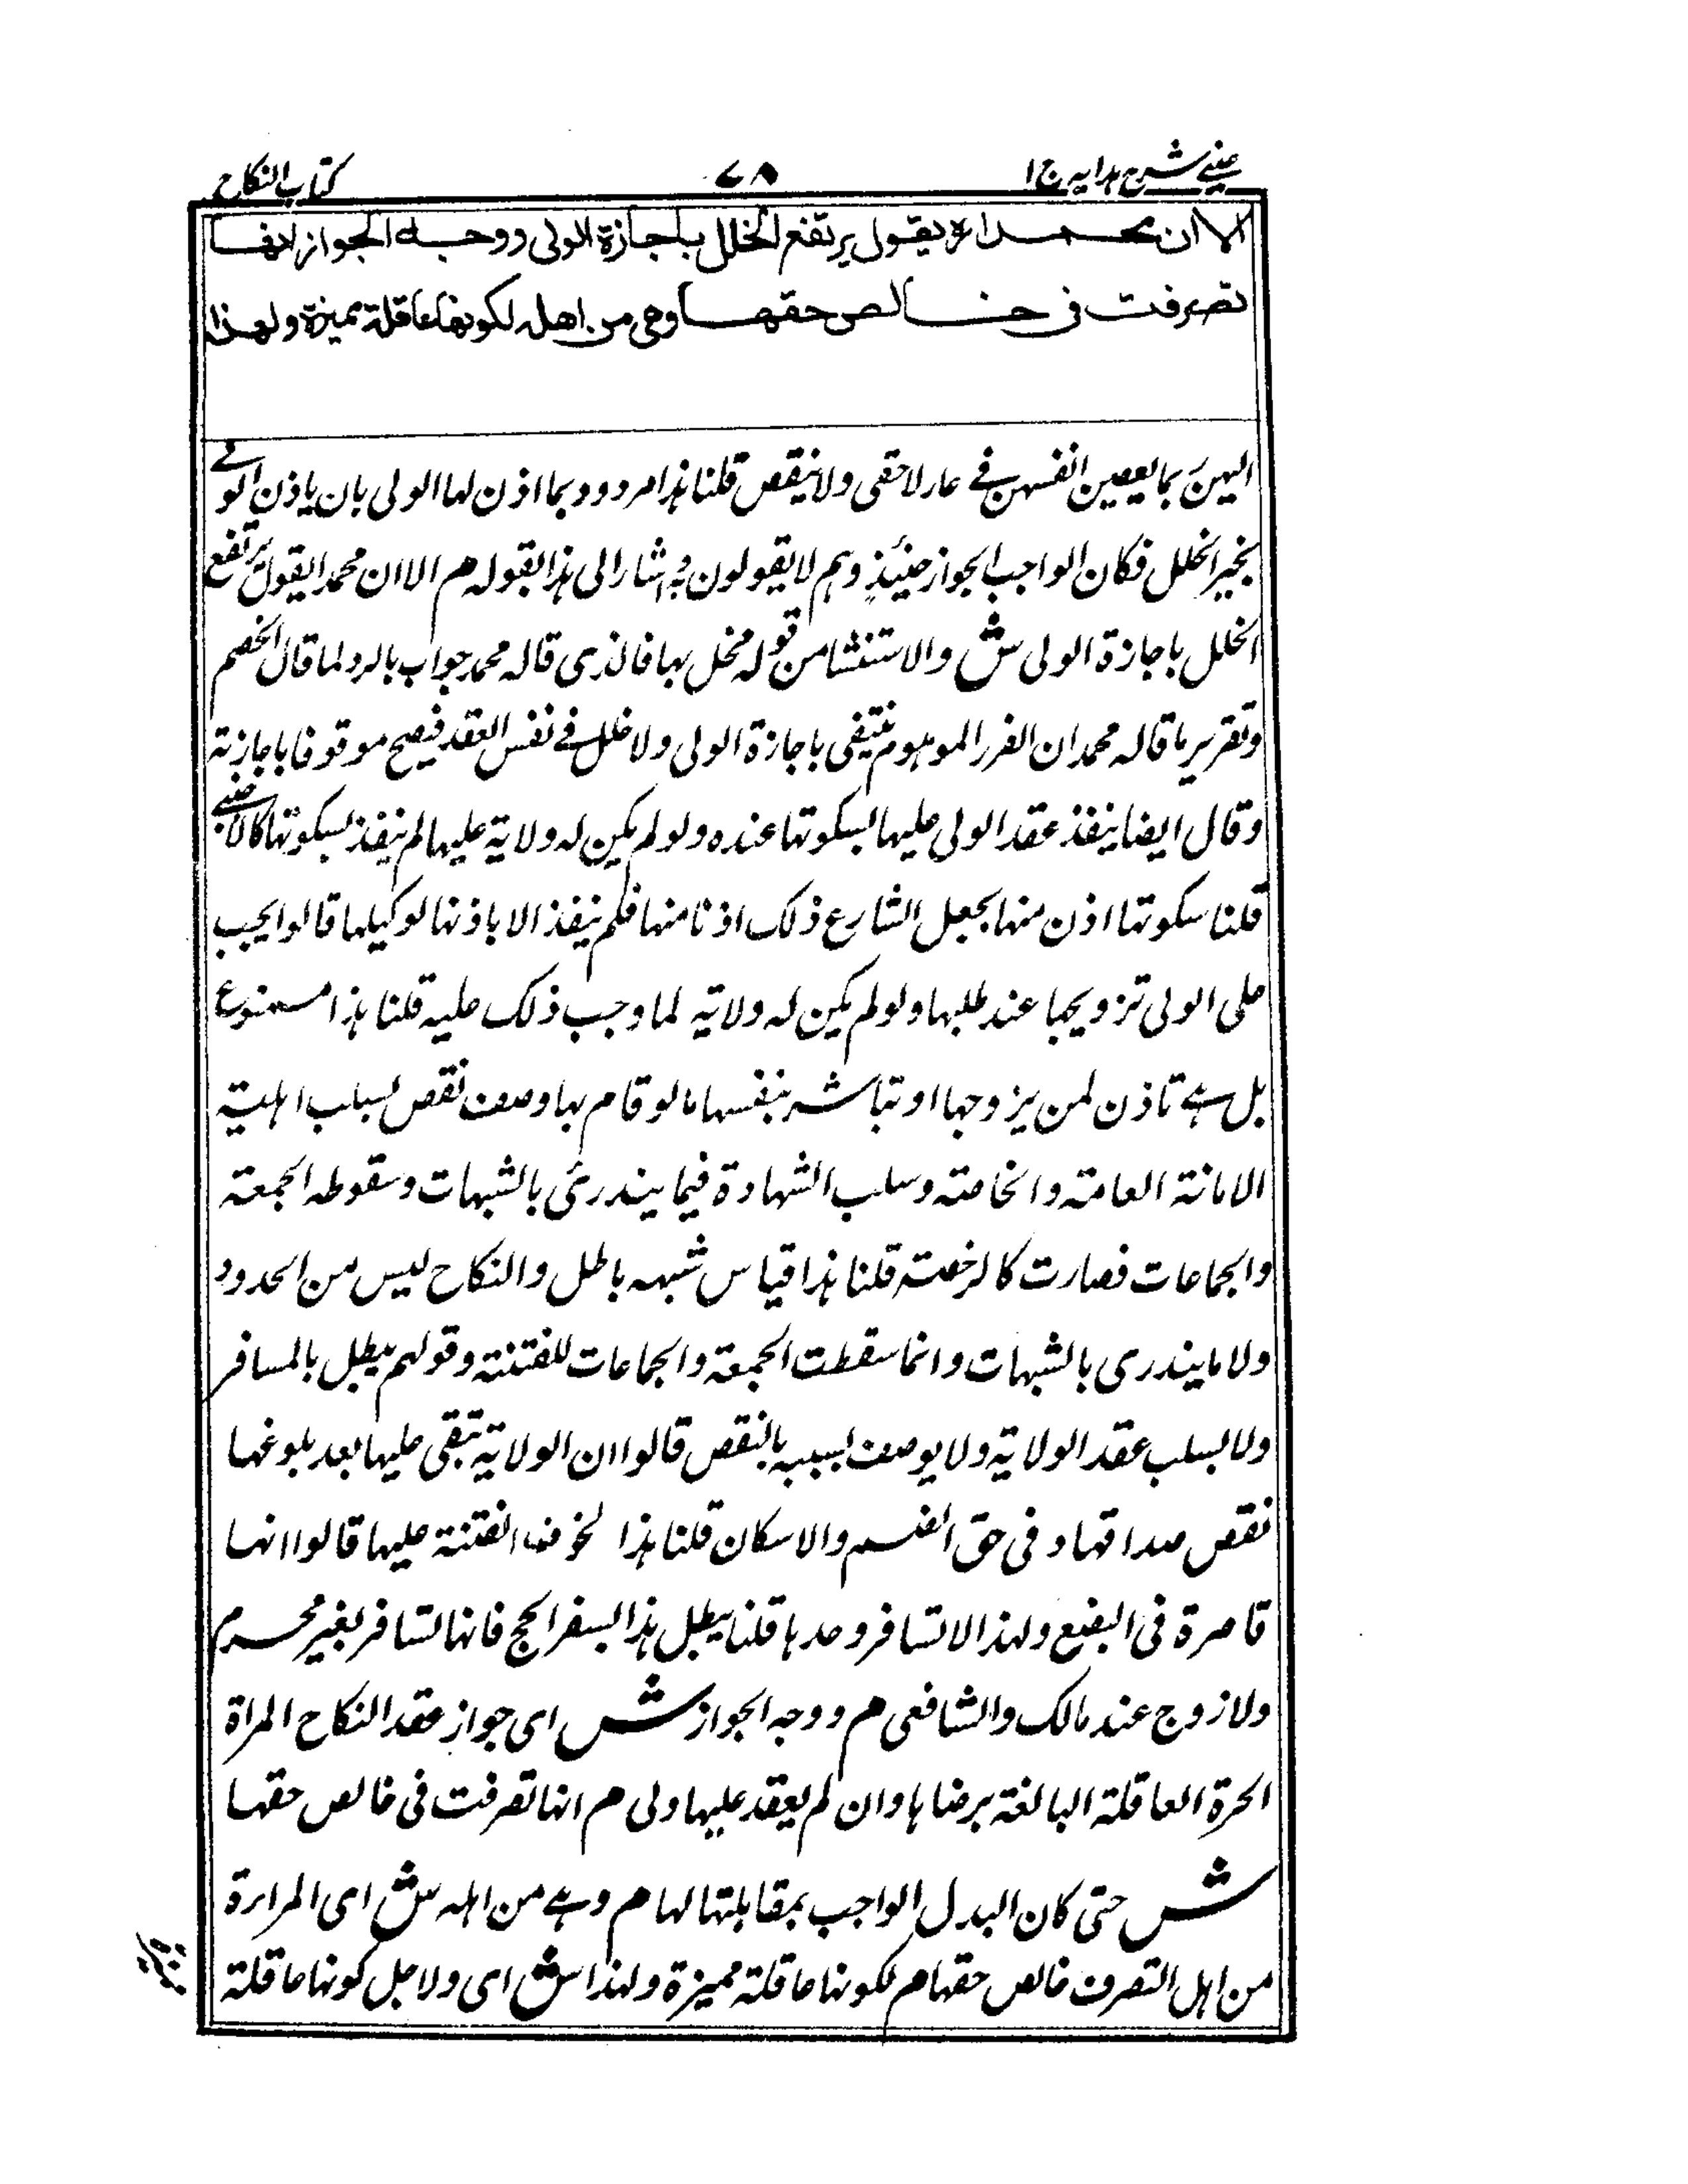 عینے شرح ہدایہ ج ۱
۷۸
کتاب النکاح
الا ان محمدا رہ یقول یرتفع الخلل باجازة الولی ووجه الجواز لانها
تصرفت فی خالص حقها وهی من اهله لکونها عاقلة ممیزة ولهذا
الیهن بما یعصین انفسهن فے عار لاحقی ولا ینقص قلنا هذا مردود بما اذن لها الولی بان یاذن الولے
بخیر الخلل فکان الواجب الجواز حینئذ وهم لا یقولون به اشار الی هذا بقوله م الا ان محمد ایقول یرتفع
الخلل باجازة الولی ش والاستثنا من قوله مخل بها فالذی قاله محمد جواب بالرد لما قال الخصم
وتقریر ما قاله محمد ان الضرر الموهوم ینتفی باجازة الولی ولا خلل فے نفس العقد فیصح موقوفا باجازته
وقال ایضا ینفذ عقد الولی علیها بسکوتها عنده ولو لم یکن له ولایة علیها لم ینفذ بسکوتها کالاجنبے
قلنا سکوتها اذن منها بجعل الشارع ذلک اذنا منها فلم ینفذ الا باذنها لوکیلها قالوا یجب
علی الولی تزویجها عند طلبها ولو لم یکن له ولایة لما وجب ذلک علیه قلنا هذا ممنوع
بل هے تاذن لمن یزوجها او تباشر بنفسها ما لو قام بها وصف نقص لسلب اهلیة
الامانة العامة والخاصة وسلب الشهادة فیما یندرئ بالشبهات وسقوطه الجمعة
والجماعات فصارت کالرخصة قلنا هذا قیاس شبهه باطل والنکاح لیس من الحدود
ولا ما یندری بالشبهات وانما سقطت الجمعة والجماعات للفتنة وقولهم یبطل بالمسافر
ولا بسلب عقد الولایة ولا یوصف بسببه بالنقص قالوا ان الولایة تبقی علیها بعد بلوغها
نقص صداقها وفی حق الفسم والاسکان قلنا هذا لخوف الفتنة علیها قالوا انها
قاصرة فی البضع ولهذا لا تسافر وحدها قلنا یبطل هذا بسفر الحج فانها تسافر بغیر محرم
ولا زوج عند مالک والشافعی م ووجه الجواز ش ای جواز عقد النکاح المراة
الحرة العاقلة البالغة برضاها وان لم یعقد علیها ولی م انها تصرفت فی خالص حقها
ش حتی کان البدل الواجب بمقابلتها لها م وهے من اهله ش ای المراة
من اهل التصرف خالص حقها م لکونها عاقلة ممیزة ولهذا ش ای ولاجل کونها عاقلة